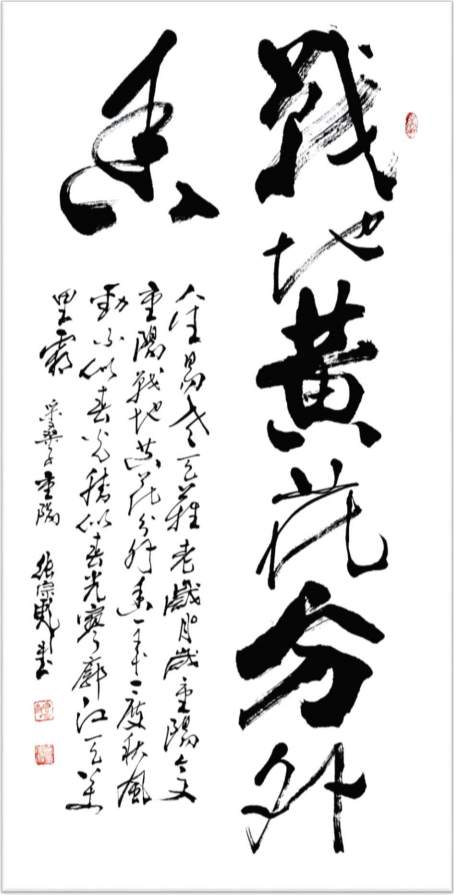 戰地黃花分外
香
人生易老天難老歲歲重陽今又
重陽戰地黃花分外香一年一度秋風
勁不似春光勝似春光寥廓江天萬
里霜 采桑子重陽 張宗書